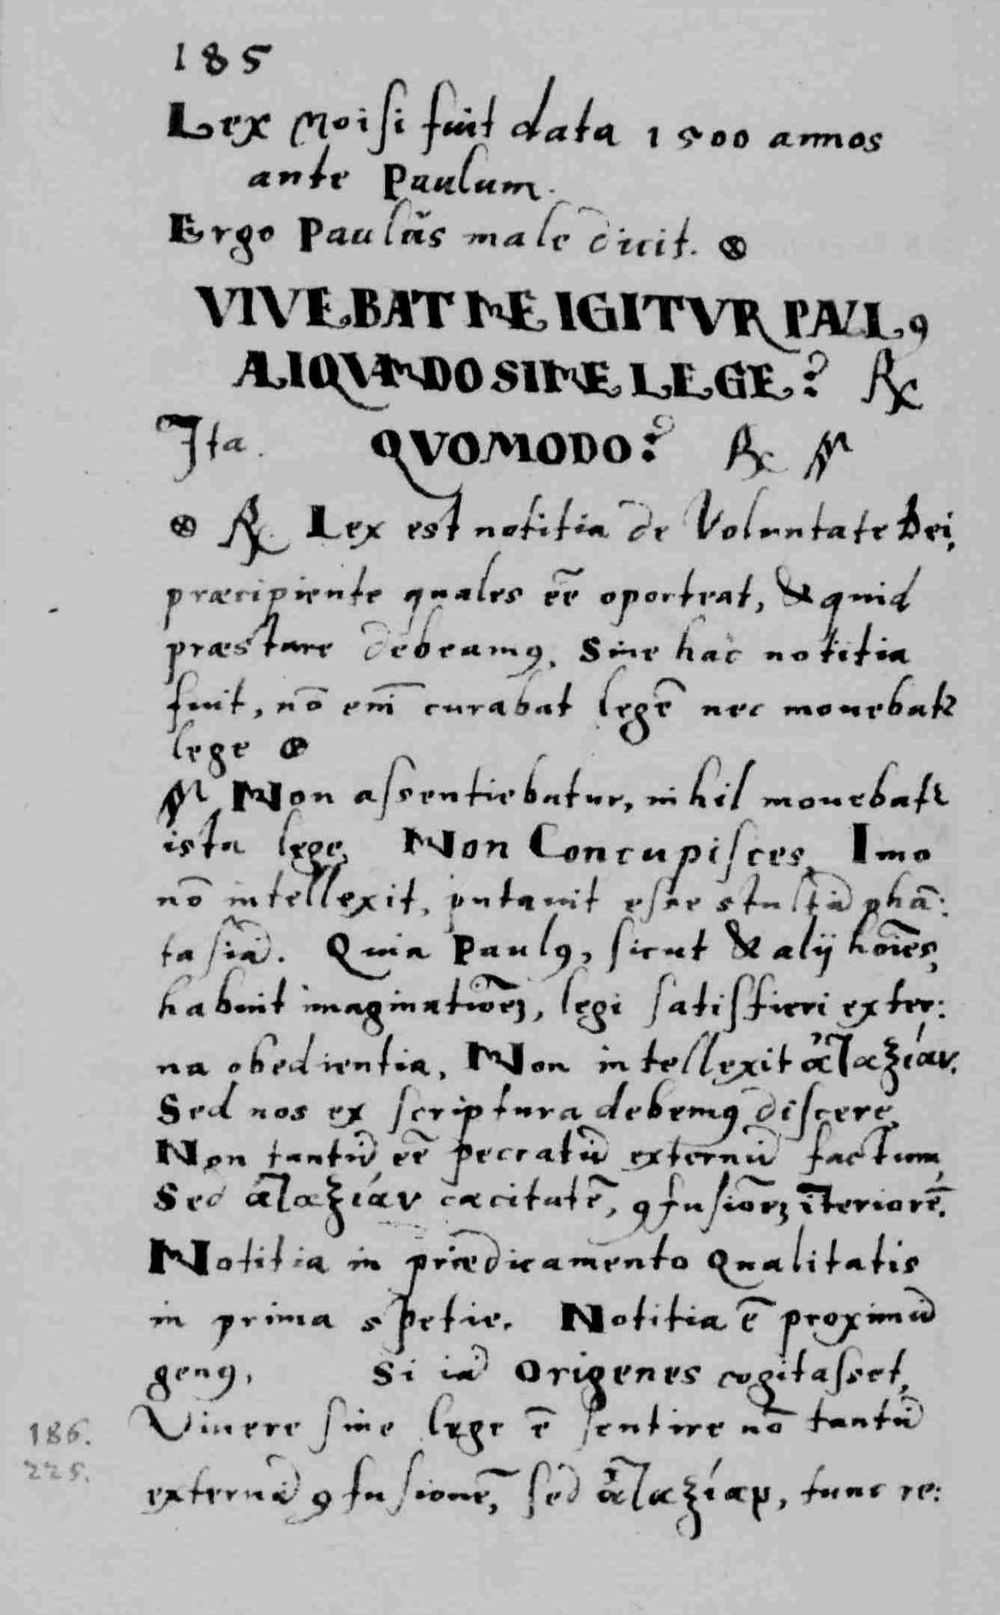 185
Lex Moisi fuit data 1500 annos
ante Paulum.
Ergo Paulus male dicit. ⊗
VIVEBAT NE IGITVR PAVLꝰ
ALIQVANDO SINE LEGE? ℞
Ita. QVOMODO? ℞
⊗ ℞. Lex est notitia de Voluntate Dei,
præcipiente quales eē oporteat, & quid
præstare debeamꝰ. Sine hac notitia
fuit, nō em̄ curabat legē nec mouebatr
lege
Non assentiebatur, nihil mouebatr
ista lege, Non Concupisces, Imo
nō intellexit, putauit esse stultā phā:
tasiā. Quia Paulꝰ, sicut & alij hoīes,
habuit imaginatiōeʒ, legi satisfieri exter:
na obedientia, Non intellexit ἀταξίαν.
Sed nos ex scriptura debemꝰ discere,
Non tantū eē peccatū externū factum,
Sed ἀταξίαν cæcitatē, ꝯfusiōeʒ īteriorē.
Notitia in prædicamento Qualitatis
in prima spetie. Notitia ē proximū
genꝰ, Si iā Origenes cogitasset,
Viuere sine lege ē sentire nō tantū
externā ꝯfusionē, sed ἀταξίαν, tunc re:
186.
225.